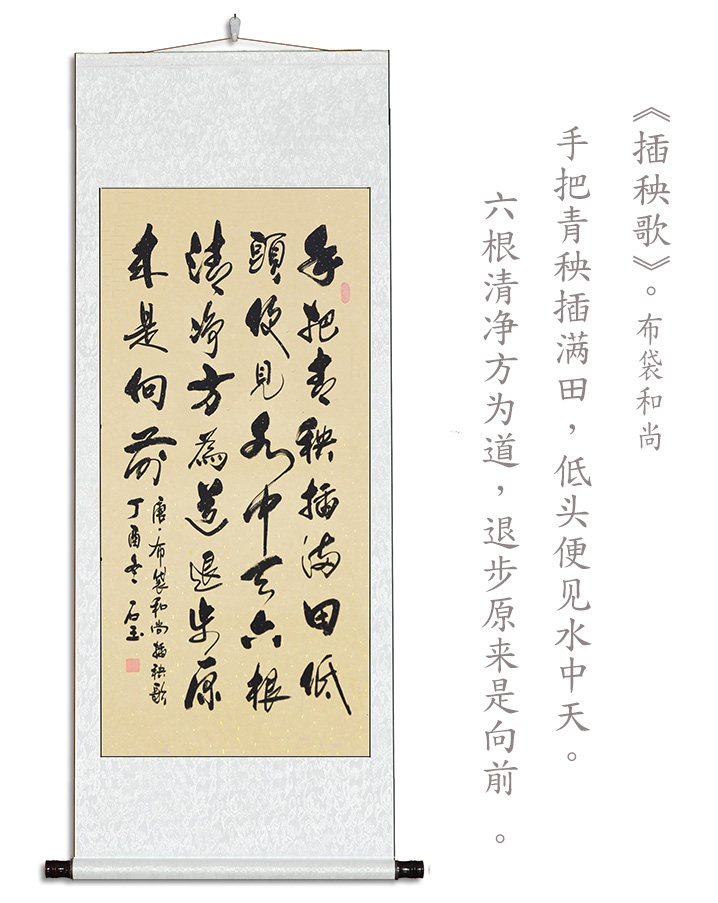 《插秧歌》。布袋和尚
手把青秧插满田，低头便见水中天。
六根清净方为道，退步原来是向前。
手把青秧插满田低
頭便見水中天六根
清净方為道退步原
来是向前
唐·布袋和尚插秧歌
丁酉冬石玉